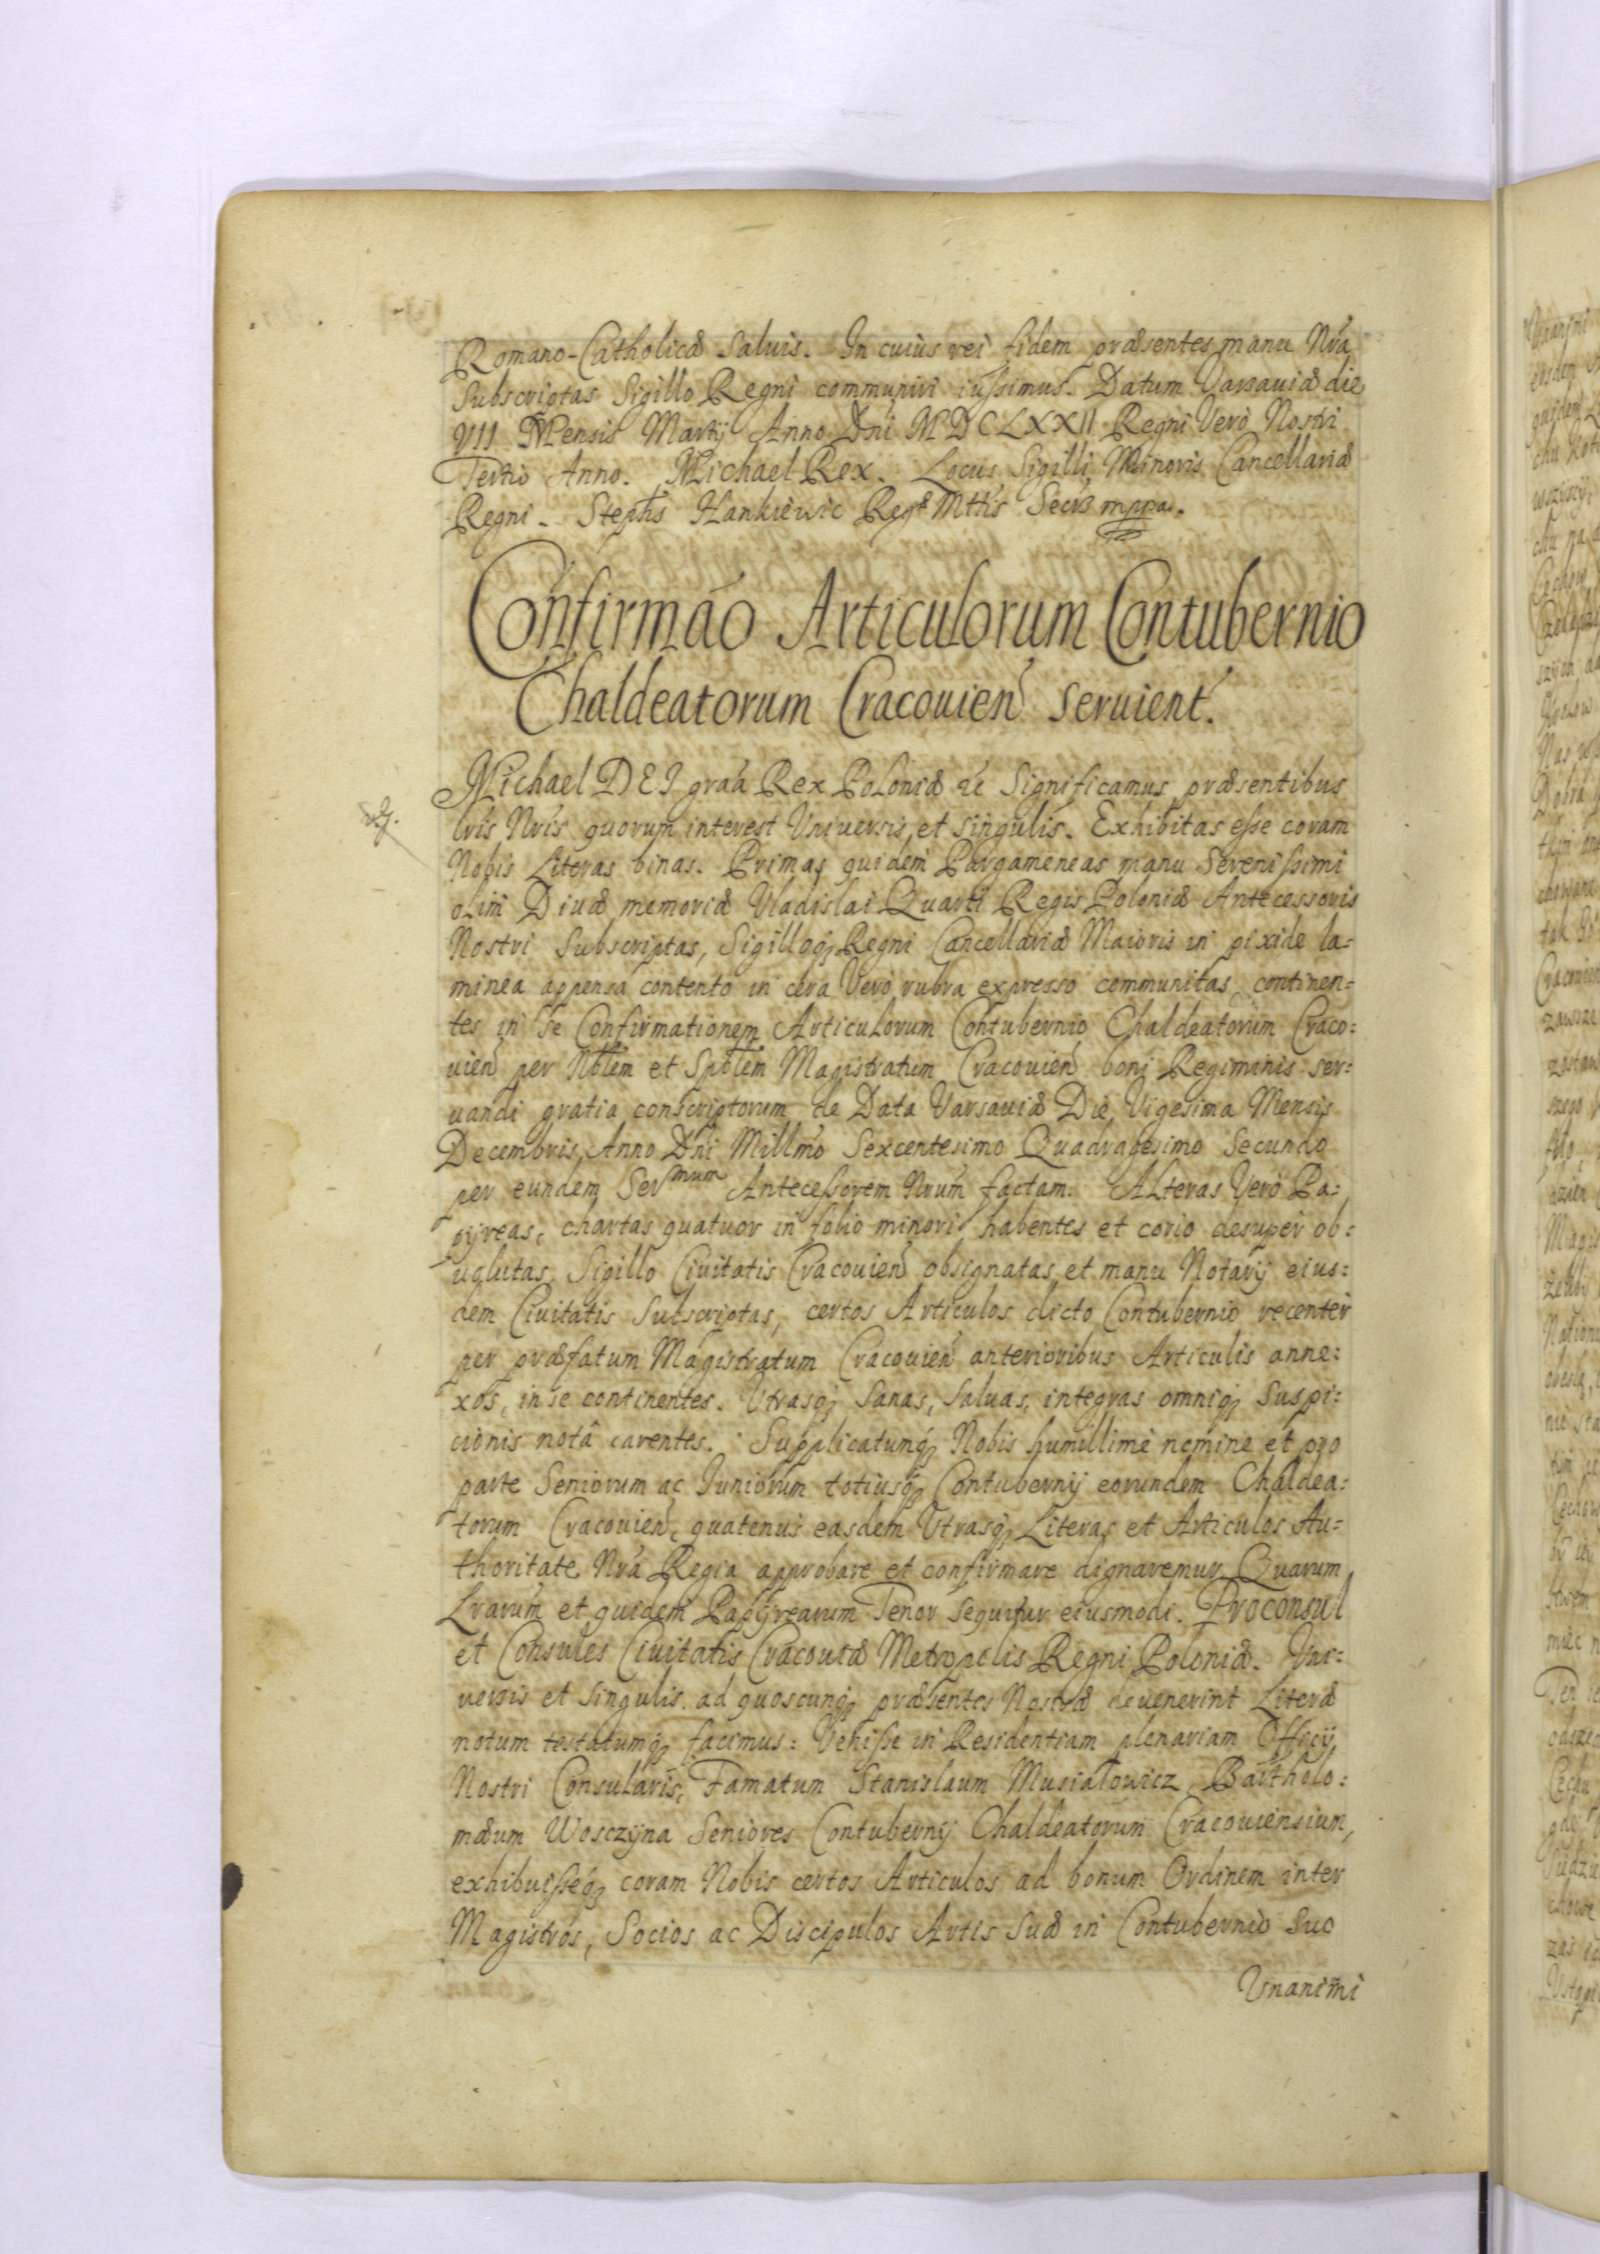 Romano-Catholicæ Salvis. In cuius rei fidem præsentes manu Nrá
Subscriptas Sigillo Regni communiri iussimus. Datum Varsaviæ die
VII Mensis Martij Anno Dni MDCLXXII Regni Verò Nostri
Tertio Anno. Michael Rex. Locus Sigilli Minoris Cancellariæ
Regni. Stephs Hankiewic Regæ Mttis Secrs mppa.
Confirmáo Articulorum Contubernio
Chaldeatorum Cracovien servient.
Michael DEI graá Rex Poloniæ etc Significamus præsentibus
lris Nris quorum interest Universis et singulis. Exhibitas esse coram
Nobis Literas binas. Primas quidem Pargameneas manu Serenissimi
olim Divæ memoriæ Vladislai Quarti Regis Poloniæ Antecessoris
Nostri Subscriptas, Sigilloq; Regni Cancellariæ Maioris in pixide la=
minea appensa contento in cera Verò rubra expresso communitas, continen=
tes in se Confirmationem Articulorum Contubernio Chaldeatorum Craco=
vien per Nblem et Spblem Magistratum Cracovien boni Regiminis ser=
vandi gratia conscriptorum de Data Varsaviæ Die Vigesima Mensis
Decembris Anno Dni Millmo Sexcentesimo Quadragesimo Secundo
per eundem Sermum Antecessorem Nrum factam. Alteras Verò Pa=
pyreas, chartas quatuor in folio minori habentes et corio desuper ob=
volutas Sigillo Civitatis Cracovien obsignatas et manu Notarij eius=
dem Civitatis Subscriptas, certos Articulos dicto Contubernio recenter
per præfatum Magistratum Cracovien anterioribus Articulis anne=
xos, in se continentes. Utrasq; Sanas, Salvas, integras omniq; Suspi=
cionis notâ carentes. Supplicatumq; Nobis humillimè nomine et pro
parte Seniorum ac Iuniorum totiusq; Contubernij eorundem Chaldea=
torum Cracovien, quatenus easdem Utrasq; Literas et Articulos Au=
thoritate Nrá Regia approbare et confirmare dignaremur Quarum
Lrarum et quidem Papyrearum Tenor sequitur eiusmodi. Proconsul
et Consules Civitatis Cracoviæ Metropolis Regni Poloniæ. Uni=
versis et singulis ad quoscunq; præsentes Nostræ devenerint Literæ
notum testatumq; facimus: Venisse in Residentiam plenariam Officij
Nostri Consularis, Famatum Stanislaum Musiałowicz, Bartholo=
mæum Wosczyna Seniores Contubernij Chaldeatorum Cracoviensium,
exhibuisseq; coram Nobis certos Articulos ad bonum Ordinem inter
Magistros, Socios ac Discipulos Artis Suæ in Contubernio Suo
Unanimi